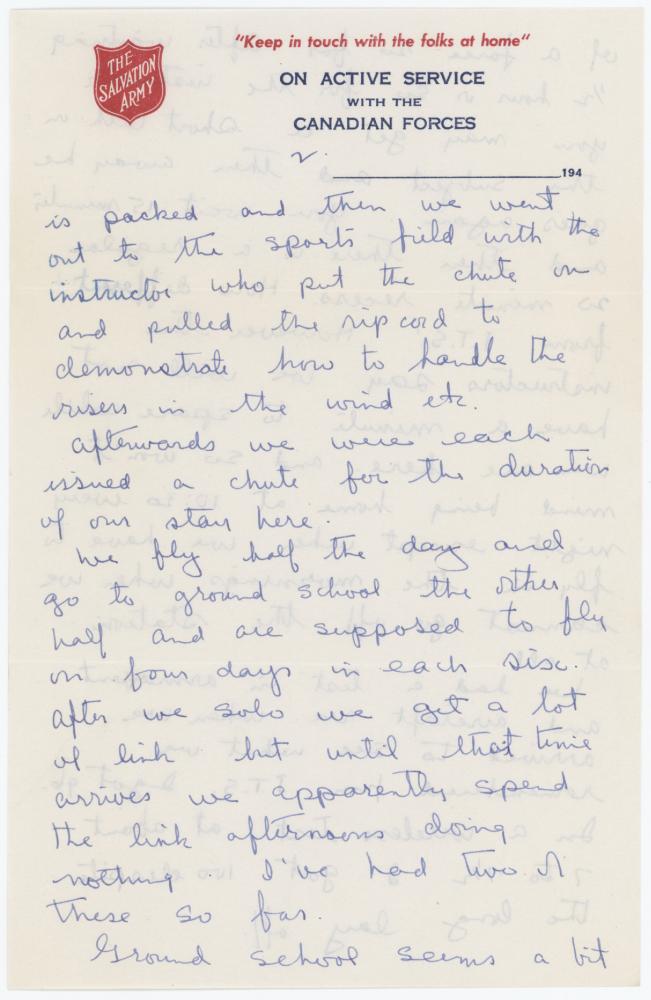 "Keep in touch with the folks at home"
THE
SALVATION
ARMY
ON ACTIVE SERVICE
WITH THE
CANADIAN FORCES
2.
194
is packed and then we went
out to the sports field with the
instructor who put the chute on
and pulled the rip cord to
demonstrate how to handle the
risers in the wind etc.
Afterwards we were each
issued a chute for the duration
of our stay here.
We fly half the day and
go to ground school the other
half and are supposed to fly
on four days in each six.
After we solo we get a lot
of link but until that time
arrives we apparently spend
the link afternoons doing
nothing. I've had two of
these so far.
Ground school seems a bit